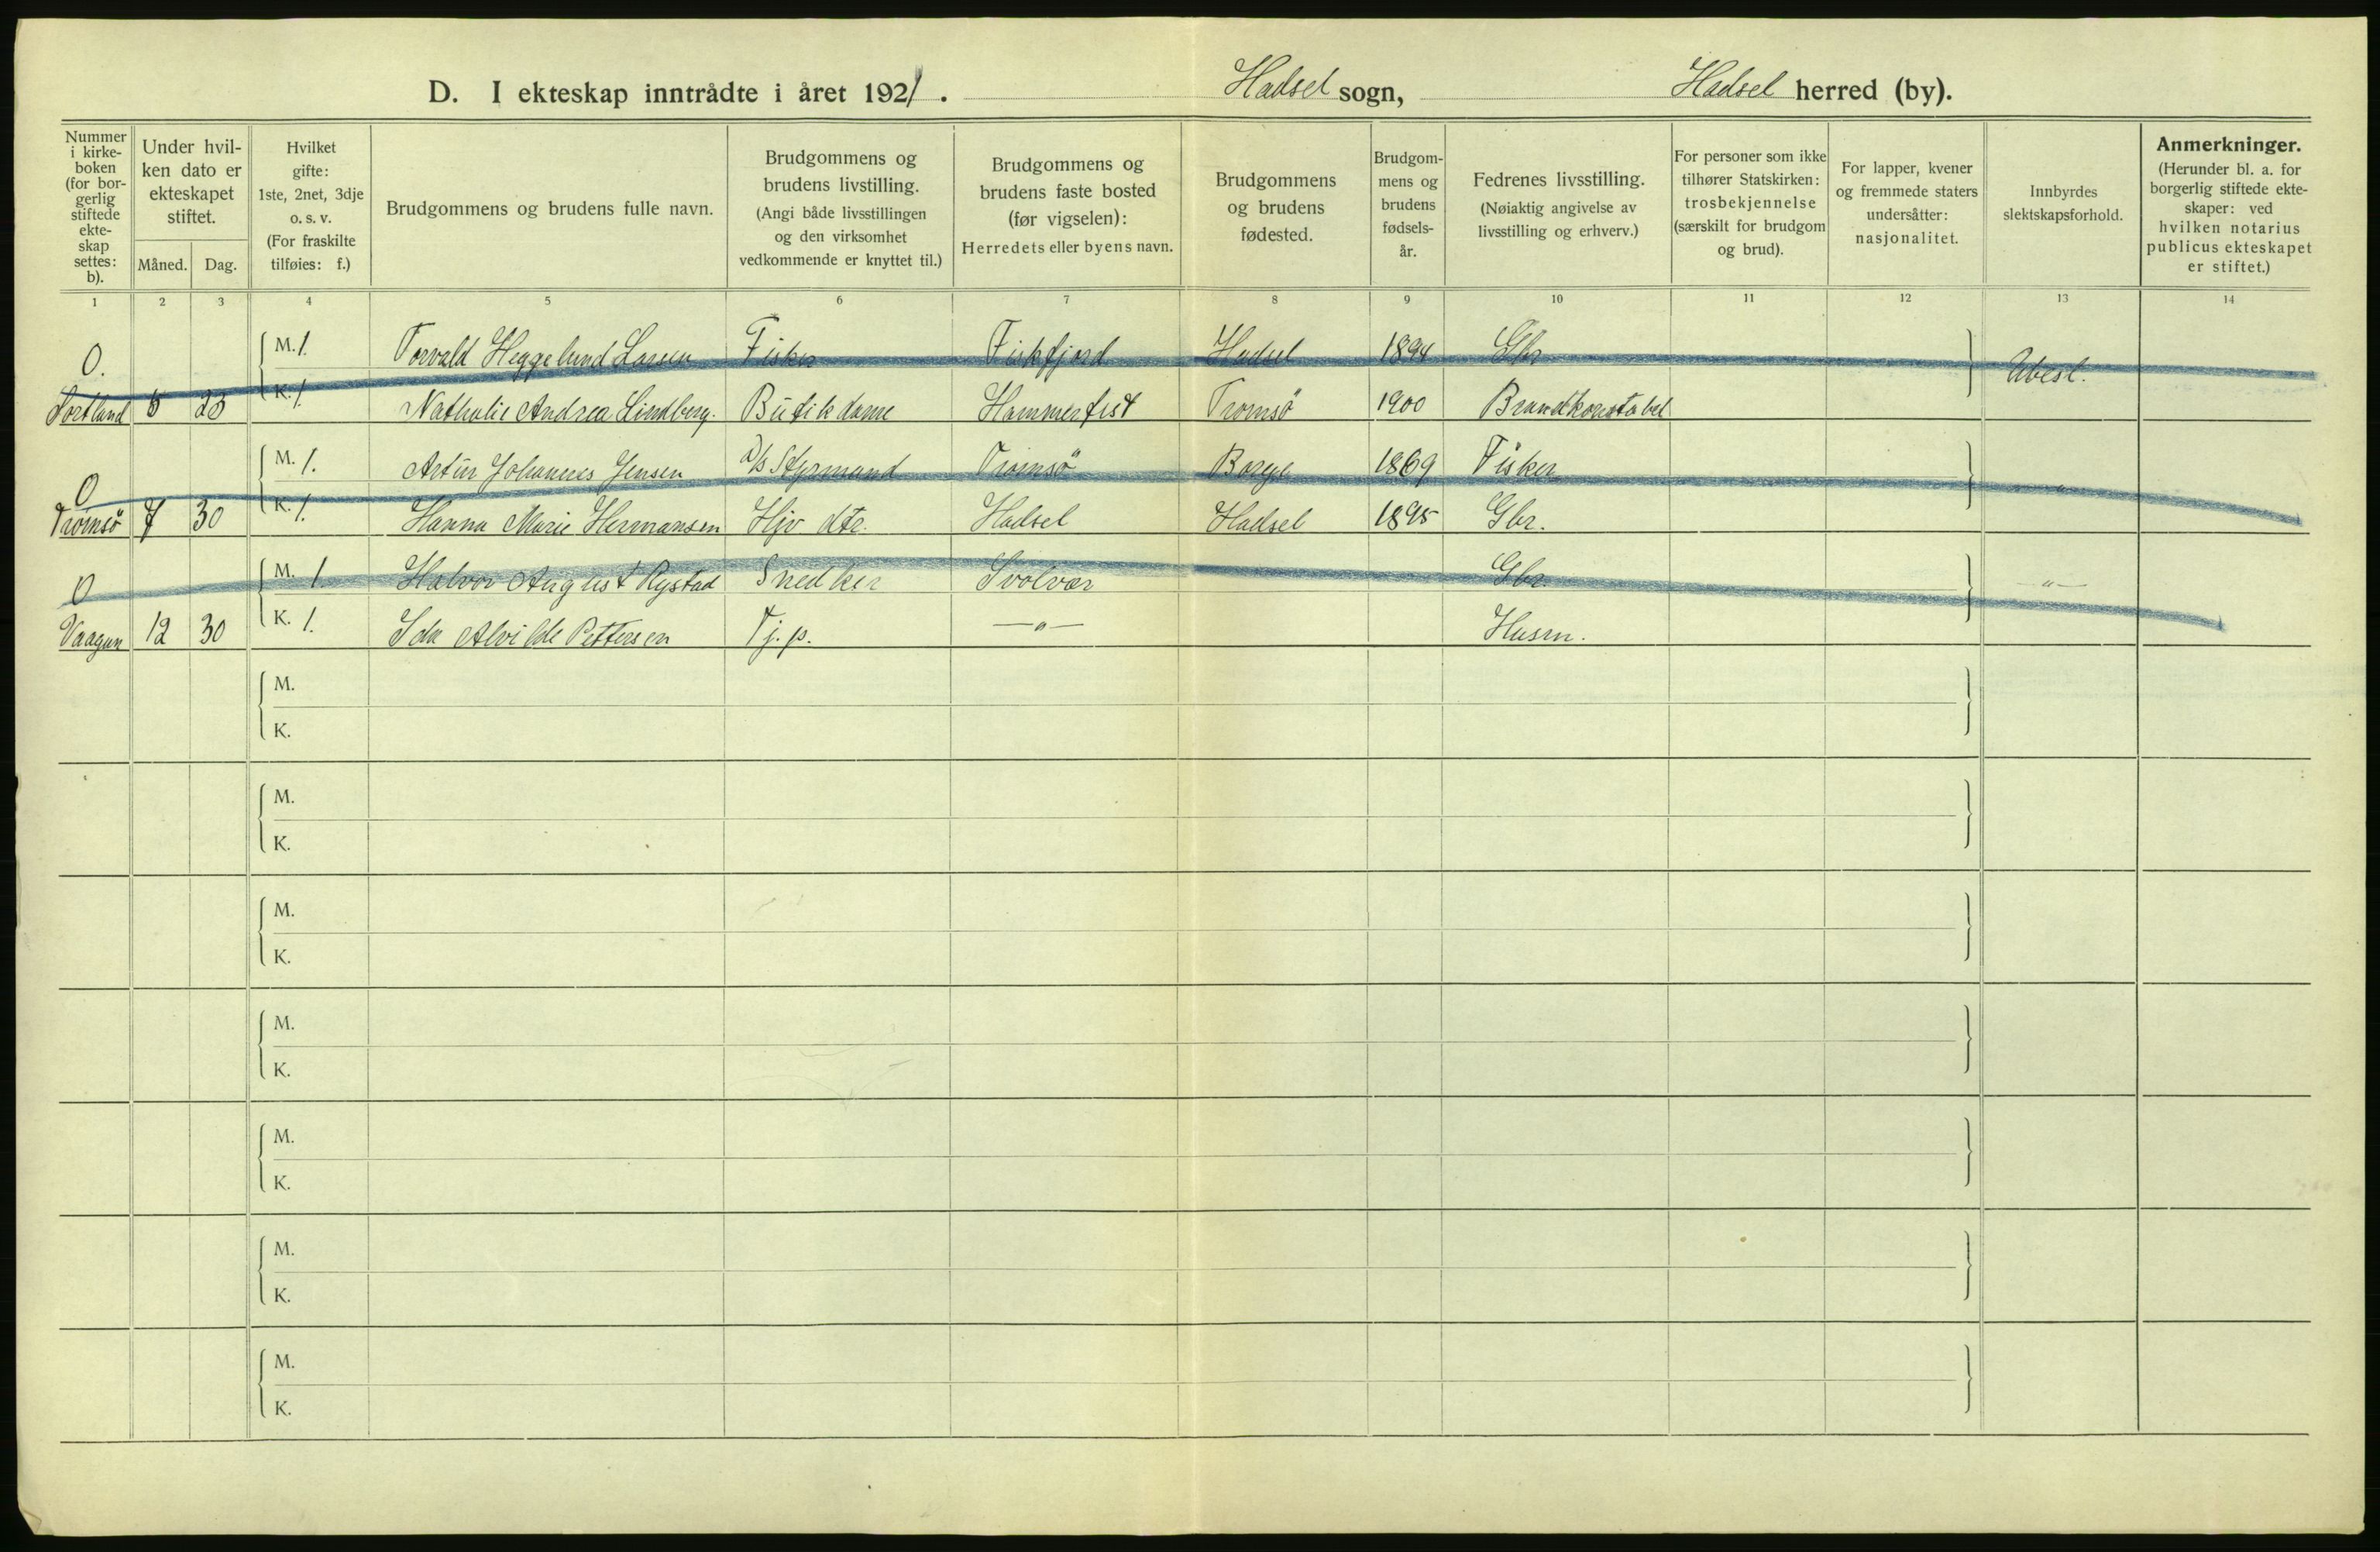 D. I ekteskap inntrådte i året 1921. Hadsel sogn, Hadsel herred (by).
Nummer i kirkeboken (for borgerlig stiftede ekteskap settes: b).
Under hvilken dato er ekteskapet stiftet.
Måned. Dag.
Hvilket gifte: 1ste, 2net, 3dje o. s. v. (For fraskilte tilføies: f.)
Brudgommens og brudens fulle navn.
Brudgommens og brudens livstilling. (Angi både livsstillingen og den virksomhet vedkommende er knyttet til.)
Brudgommens og brudens faste bosted (før vigselen): Herredets eller byens navn.
Brudgommens og brudens fødested.
Brudgommens og brudens fødselsår.
Fedrenes livsstilling. (Nøiaktig angivelse av livsstilling og erhverv.)
For personer som ikke tilhører Statskirken: trosbekjennelse (særskilt for brudgom og brud).
For lapper, kvener og fremmede staters undersåtter: nasjonalitet.
Innbyrdes slektskapsforhold.
Anmerkninger. (Herunder bl. a. for borgerlig stiftede ekteskaper: ved hvilken notarius publicus ekteskapet er stiftet.)
1 2 3 4 5 6 7 8 9 10 11 12 13 14
O. M. 1. Torvald Heggelund Larsen Fisker Fiskfjord Hadsel 1894 Gbr Ubesl.
Sortland 5 23 K. 1. Nathalie Andrea Lindberg. Butikdame Hammerfest Tromsö 1900 Brandkonstabel
O M. 1. Artur Johannes Jensen D/s Styrmand Tromsö Borge 1869 Fisker "
Tromsö 7 30 K. 1. Hanna Marie Hermansen Hjv dtr. Hadsel Hadsel 1895 Gbr.
O M. 1 Halvor August Rystad Snedker Svolvær Gbr. —"—
Vaagan 12 30 K. 1. Ida Alvilde Pettersen Tj. p. —"— Husm.
M.
K.
M.
K.
M.
K.
M.
K.
M.
K.
M.
K.
M.
K.